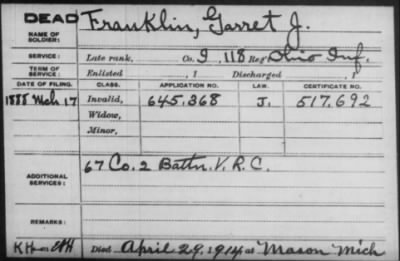 DEAD Franklin, Garret J.
NAME OF SOLDIER:
SERVICE: Late rank, Co. I, 118 Reg't Ohio Inf,
TERM OF SERVICE: Enlisted , 1 Discharged , 1
DATE OF FILING. CLASS. APPLICATION NO. LAW. CERTIFICATE NO.
1888 Mch 17 Invalid, 645,368 J. 517,692
Widow,
Minor,
ADDITIONAL SERVICES: 67 Co. 2 Battn. V.R.C.
REMARKS:
Died April 29, 1914 at Mason Mich